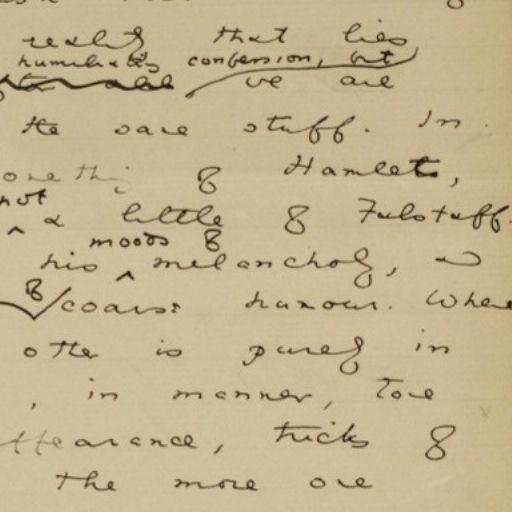 reality that lies
humiliating confession, but
we are
the same stuff. In
one thing of Hamlet,
not
a little of Falstaff.
moods of
his melancholy, and
of coarse humour. Where
other is purely in
, in manner, tone
appearance, tricks of
The more one